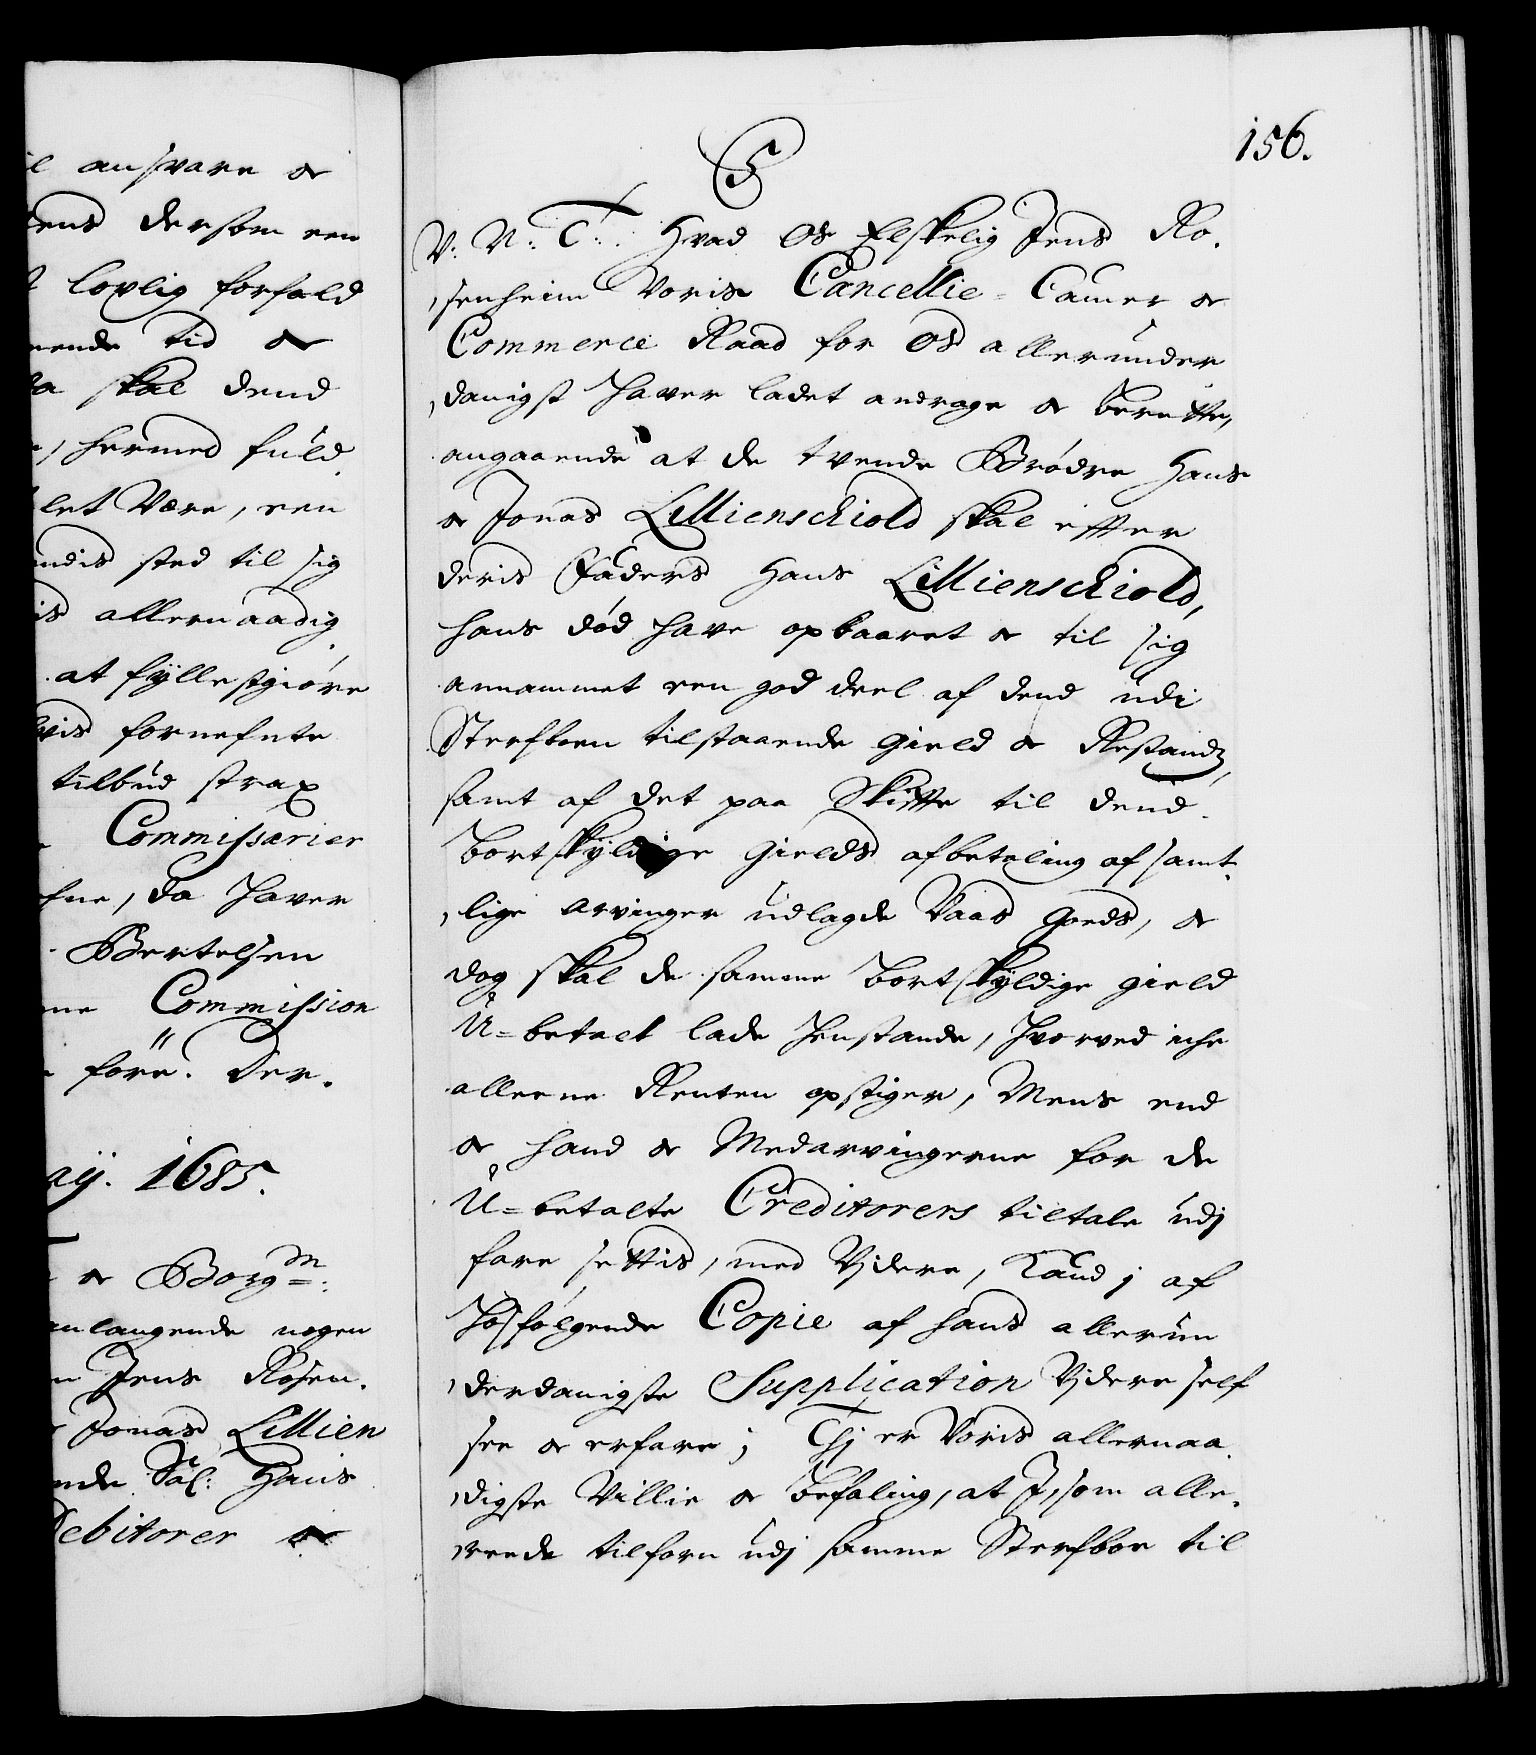 ansvare &
dersom een
lovlig forfald
tid &
skal dend
hermed fuld
let Være, een
sted til sig
allernaadig
at fyllestgiøre
fornefnte
tilbud strax
Commissarier
da haver
Bertelsen
Commission
føre. Der.
1685.
& Borgm:
anlangende nogen
Jens Rosen.
Jonas Lillien
Sal: Hans
Debitorer &
156.
V: V: C: Hvad Os Elskelig Jens Ro.
,senheim Voris Cancellie= Camer &
Commerce Raad for Os allerunder
,danigst haver ladet andrage & berette,
angaaende at de tvende Brødre Hans
& Jonas Lillienschiold skal effter
deris Faders Hans Lillienschiold,
hans død have opbaaret & til sig
annammet een god deel af dend udi
Sterfboen tilstaaende gield & Restandz,
samt af det paa Skiffte til dend
bortskyldige gields afbetaling af samt
,lige arvinger udlagde Vaas goeds, &
dog skal de samme bortskyldige gield
U=betalt lade henstande, hvorved iche
alleene Renten opstiger, Mens end
& hand & Medarvingerne for de
U=betalte Creditorers tiltale udj
fare settis, med Videre, Kand j af
hosfølgende Copie af hans allerun
,derdanigste Supplication Videre self
see & erfare; Thj er Voris allernaa
,digste Villie & befaling, at I, som alle.
,rede tilforn udj samme Sterfboe til